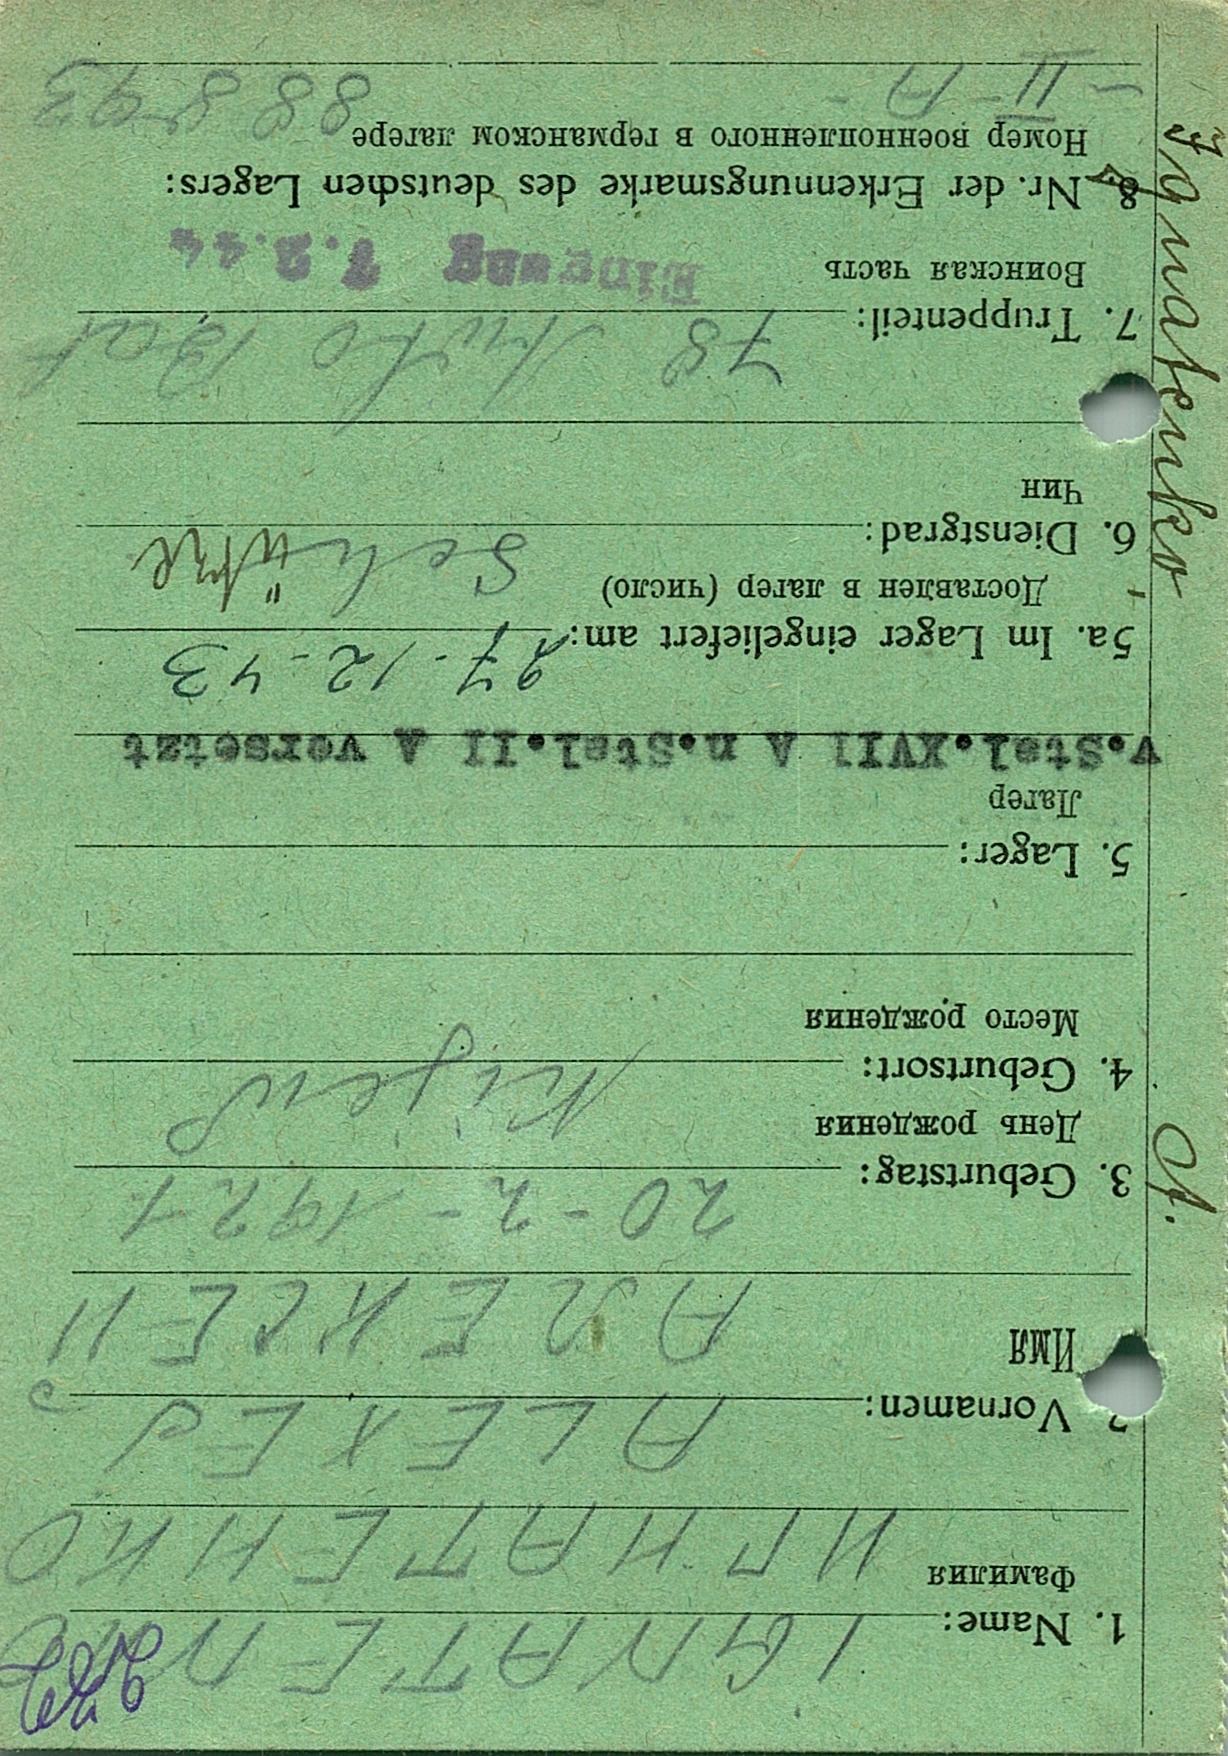 Ignatenko, A.
1. Name: IGNATENKO
Фамилия
ИГНАТЕНКО
2. Vornamen: ALEXEJ
Имя
АЛЕКСЕЙ
3. Geburtstag: 20-2-1921
День рождения
4. Geburtsort: Kijew
Место рождения
5. Lager:
Лагер
v.Stal.XVII A n.Stal.II A versetzt
5a. Im Lager eingeliefert am: 27-12-43
Доставлен в лагер (число)
6. Dienstgrad: Schütze
Чин
7. Truppenteil: 78 Bat
Воинская часть
Eingang 7.2.44
8. Nr. der Erkennungsmarke des deutschen Lagers:
Номер военнопленного в германском лагере
- II - A - 88893